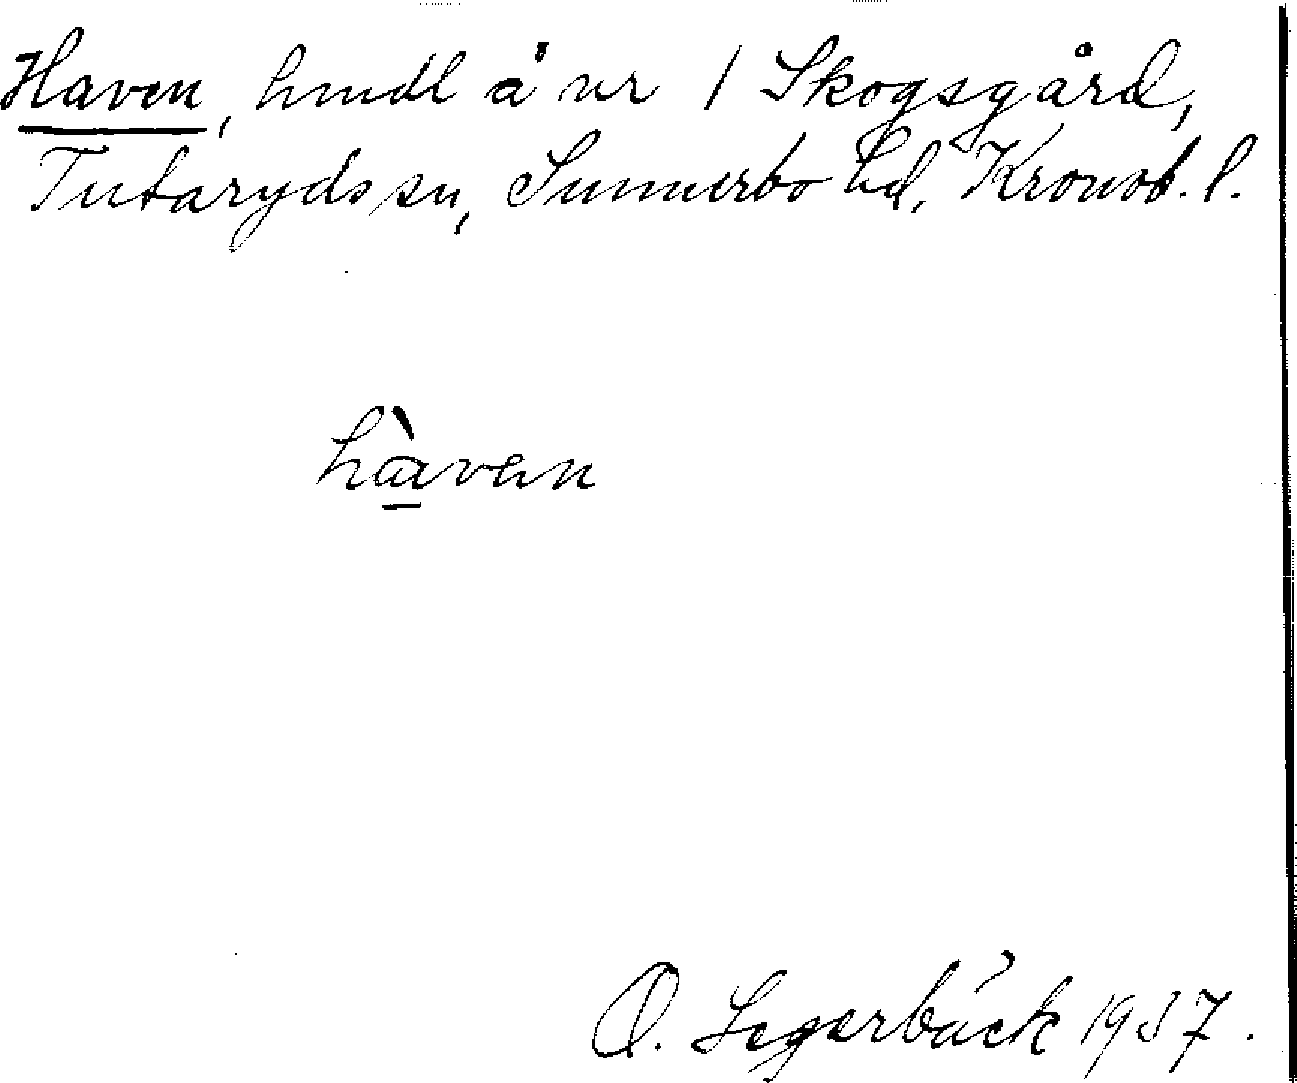 Haven, hmdl å nr 1 Skogsgård,
Tutaryds sn, Sunnerbo hd, Kronob. l.
hàven
O. Segerbäck 1937.